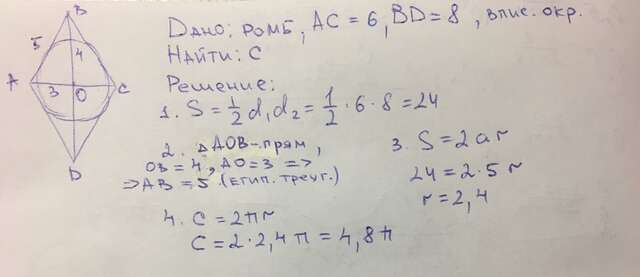 B
5
4
A
3
O
C
D
Дано: ромб, AC = 6, BD = 8, впис. окр.
Найти: C
Решение:
1. S = 1/2 d₁d₂ = 1/2 · 6 · 8 = 24
2. △AOB – прям,
OB = 4, AO = 3 =>
=> AB = 5. (Египт. треуг.)
3. S = 2ar
24 = 2 · 5 r
r = 2,4
4. C = 2πr
C = 2 · 2,4 π = 4,8 π